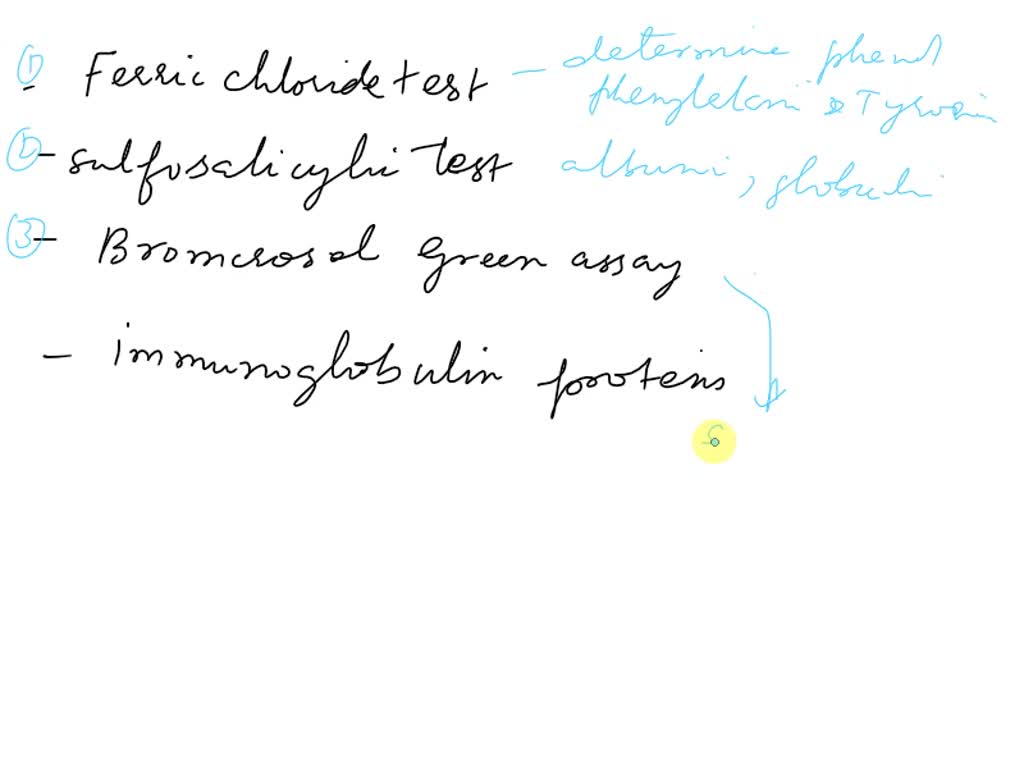 ① Ferric chloride test - determine phenol
phenylelani & Tyrosin
② - sulfosalicylic Test albumi, globuli
③ - Bromcrosol green assay
- immunoglobulin proteins